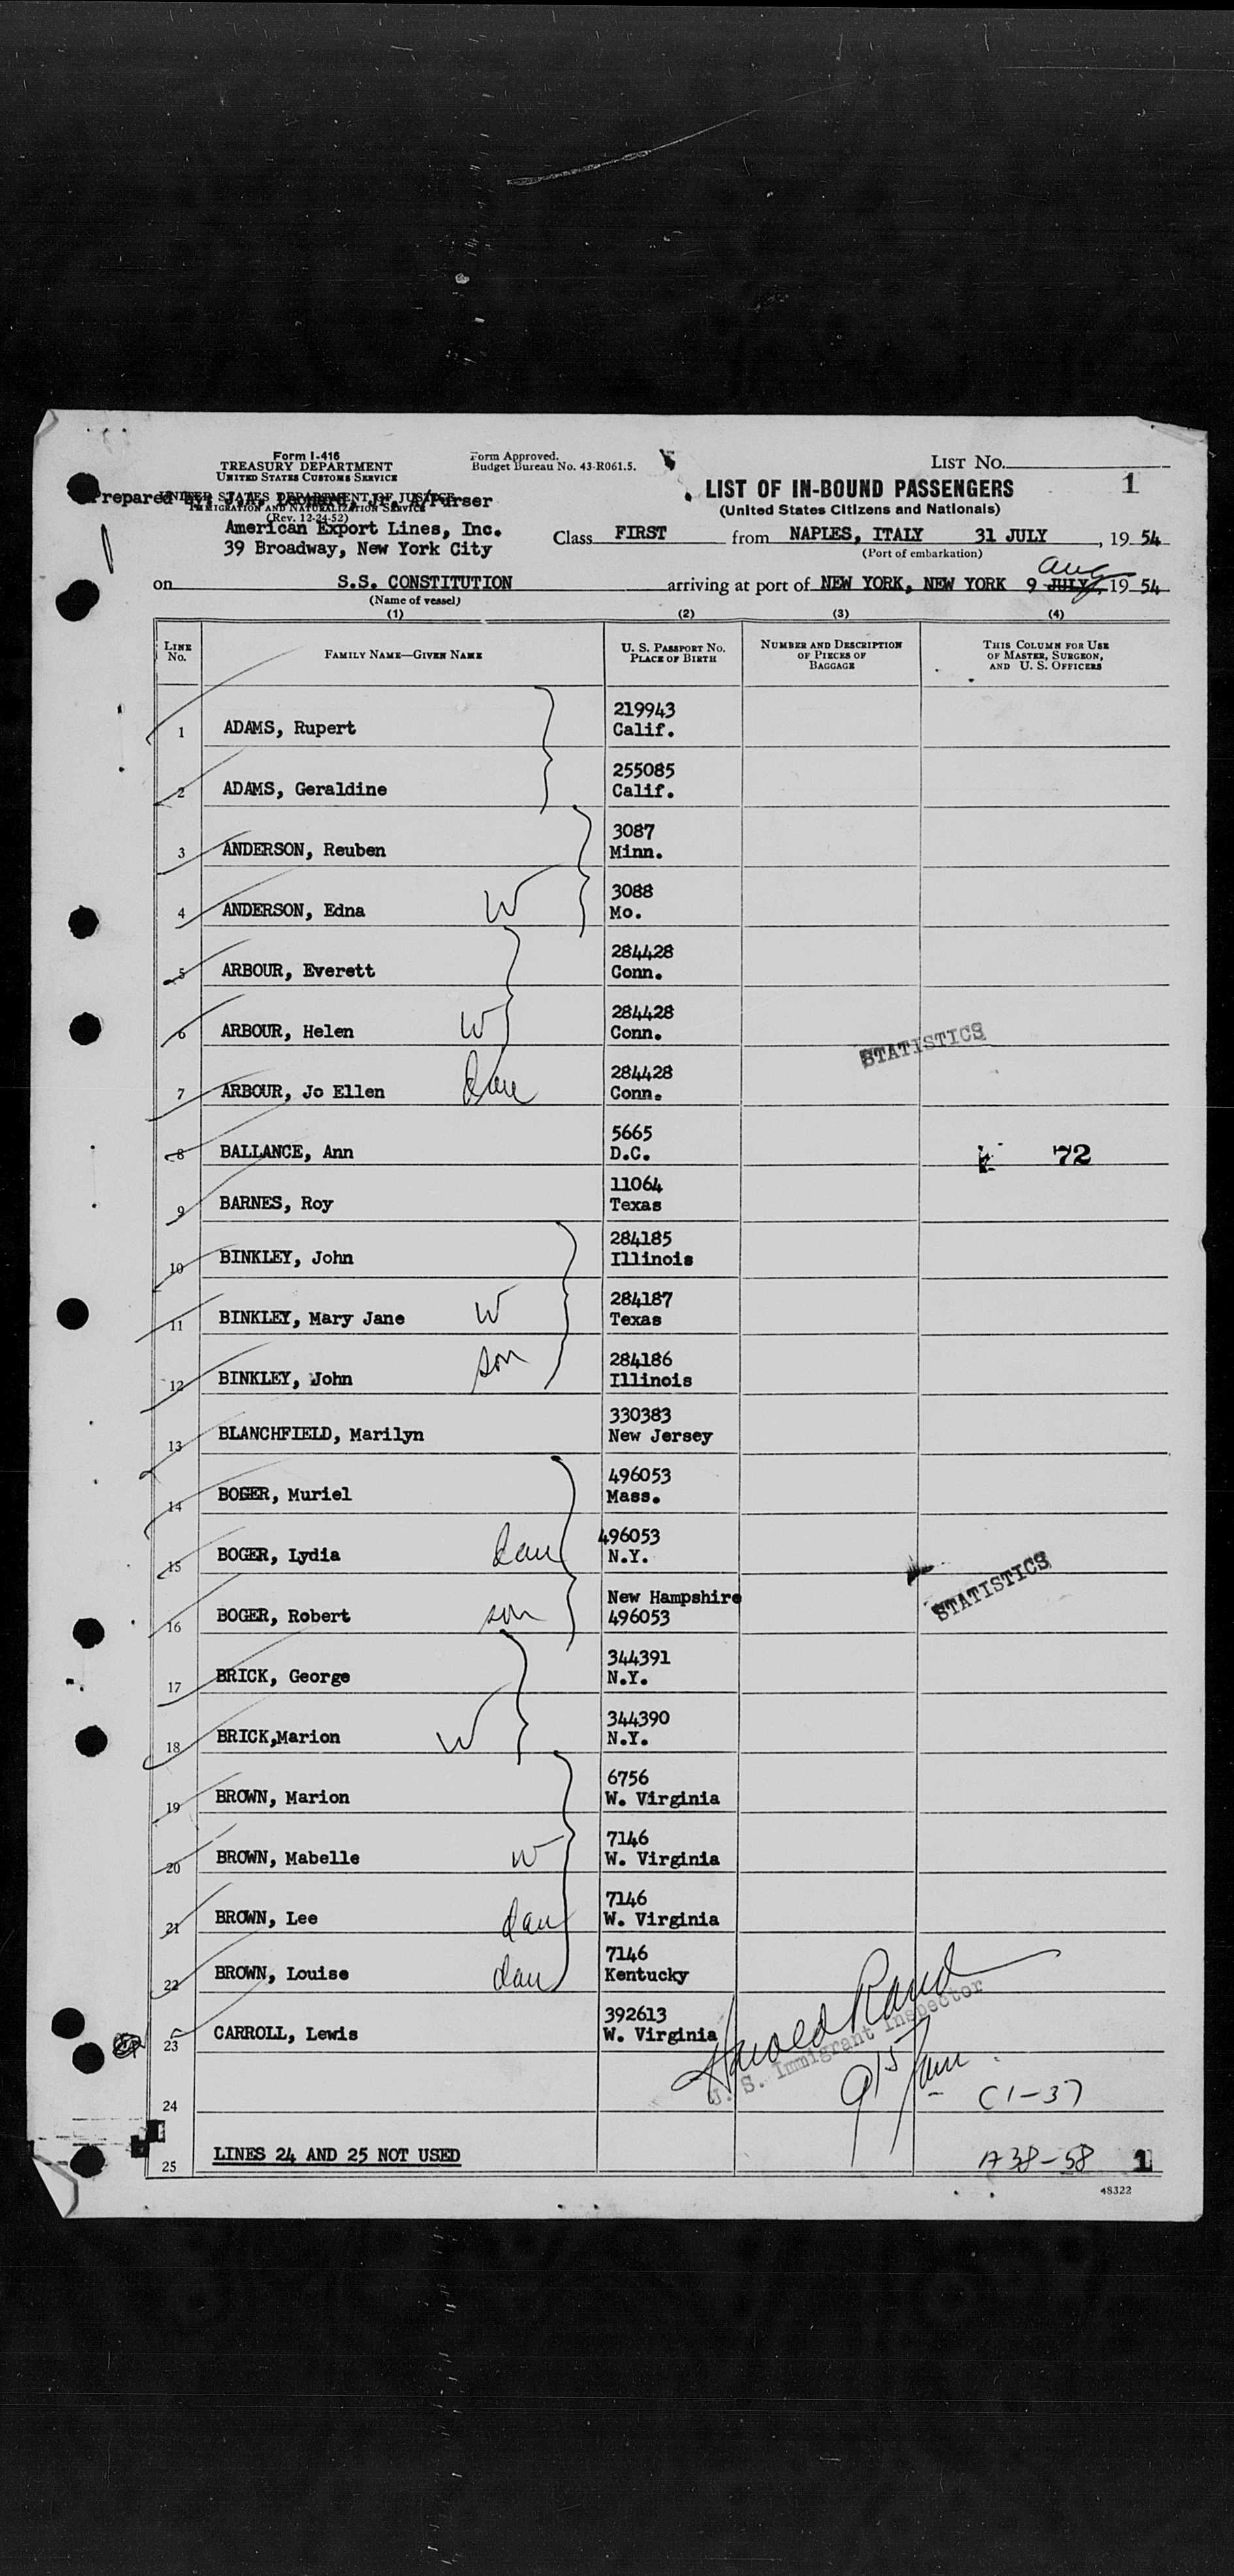 Form I-416
TREASURY DEPARTMENT
UNITED STATES CUSTOMS SERVICE
UNITED STATES DEPARTMENT OF JUSTICE
IMMIGRATION AND NATURALIZATION SERVICE
(Rev. 12-24-52)
Prepared by: J.A. Leonard, Jr. A/Purser
American Export Lines, Inc.
39 Broadway, New York City
Form Approved.
Budget Bureau No. 43-R061.5.
LIST NO.
1
LIST OF IN-BOUND PASSENGERS
(United States Citizens and Nationals)
Class FIRST from NAPLES, ITALY 31 JULY, 1954
(Port of embarkation)
Aug
on S.S. CONSTITUTION arriving at port of NEW YORK, NEW YORK 9 JULY, 1954
(Name of vessel)
(1) (2) (3) (4)
LINE No. FAMILY NAME—GIVEN NAME U. S. PASSPORT NO. PLACE OF BIRTH NUMBER AND DESCRIPTION OF PIECES OF BAGGAGE THIS COLUMN FOR USE OF MASTER, SURGEON, AND U. S. OFFICERS
219943
1 ADAMS, Rupert Calif.
255085
2 ADAMS, Geraldine Calif.
3087
3 ANDERSON, Reuben Minn.
3088
4 ANDERSON, Edna W Mo.
284428
5 ARBOUR, Everett Conn.
284428
6 ARBOUR, Helen W Conn.
STATISTICS
284428
7 ARBOUR, Jo Ellen dau Conn.
5665
8 BALLANCE, Ann D.C. 72
11064
9 BARNES, Roy Texas
284185
10 BINKLEY, John Illinois
284187
11 BINKLEY, Mary Jane W Texas
284186
12 BINKLEY, John son Illinois
330383
13 BLANCHFIELD, Marilyn New Jersey
496053
14 BOGER, Muriel Mass.
496053
15 BOGER, Lydia dau N.Y.
STATISTICS
New Hampshire
16 BOGER, Robert son 496053
344391
17 BRICK, George N.Y.
344390
18 BRICK,Marion W N.Y.
6756
19 BROWN, Marion W. Virginia
7146
20 BROWN, Mabelle W W. Virginia
7146
21 BROWN, Lee dau W. Virginia
7146
22 BROWN, Louise dau Kentucky
392613
23 CARROLL, Lewis W. Virginia
Harold Rand
U. S. Immigrant Inspector
24 C1-37
25 LINES 24 AND 25 NOT USED A38-58 1
48322